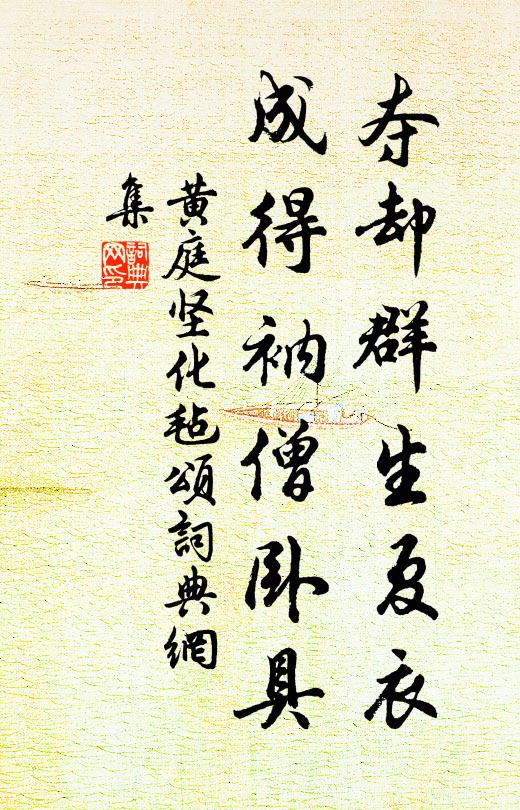 夺却群生夏衣
成得衲僧卧具
黄庭坚化毡頌詞典網
集
詞典
网印